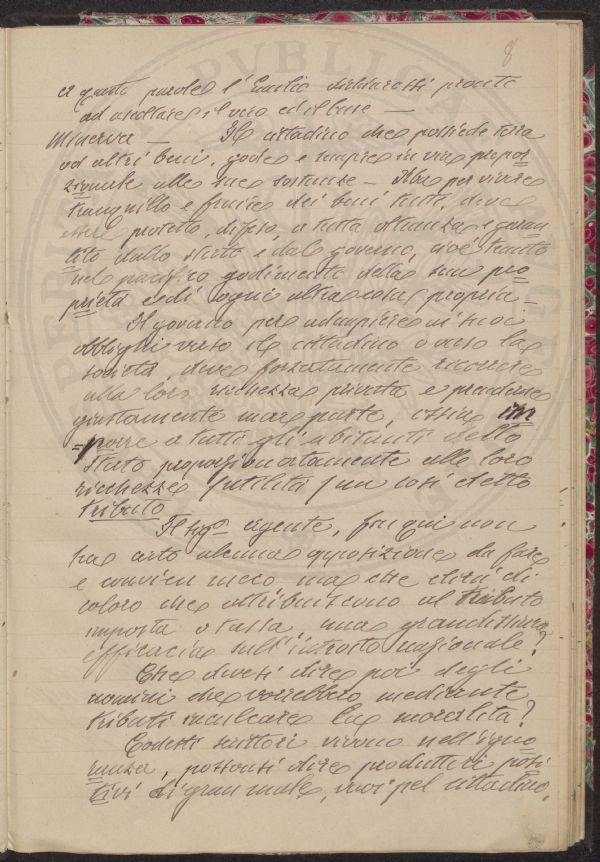 8
a queste parole l'Emilio dichiarossi pronto
ad ascoltare il vero ed il bene —
Minerva — Il cittadino che possiede terra
od altri beni, gode e sempre in vie propor
zionate alle sue sostanze — Ma per vivere
tranquillo e fruire dei beni tutti, deve
essere protetto, difeso, a tutta oltranza e garan
tito dallo stato e dal governo, cioè tenuto
nel pacifico godimento della sua pro
prietà e di ogni altra cosa propria —
Il governo per adempiere ai suoi
obblighi verso il cittadino o verso la
società, deve forzatamente ricorrere
alla loro ricchezza privata e prendere
giustamente una parte, ossia im
-porre a tutti gli abitanti dello
stato proporzionatamente alle loro
ricchezze / utilità / un così detto
tributo
Il sigr agente, fin qui non
ha certo alcuna opposizione da fare
e conviene meco, ma che dirà di
coloro che attribuiscono al tributo
imposta o tassa una grandissima
efficacia sull'introito nazionale?
Che devesi dire poi degli
uomini che vorrebbero mediante
tributi inculcare la moralità?
Codesti scrittori vivono nell'igno
ranza, possonsi dire produttori posi
tivi di gran male, vuoi pel cittadino,